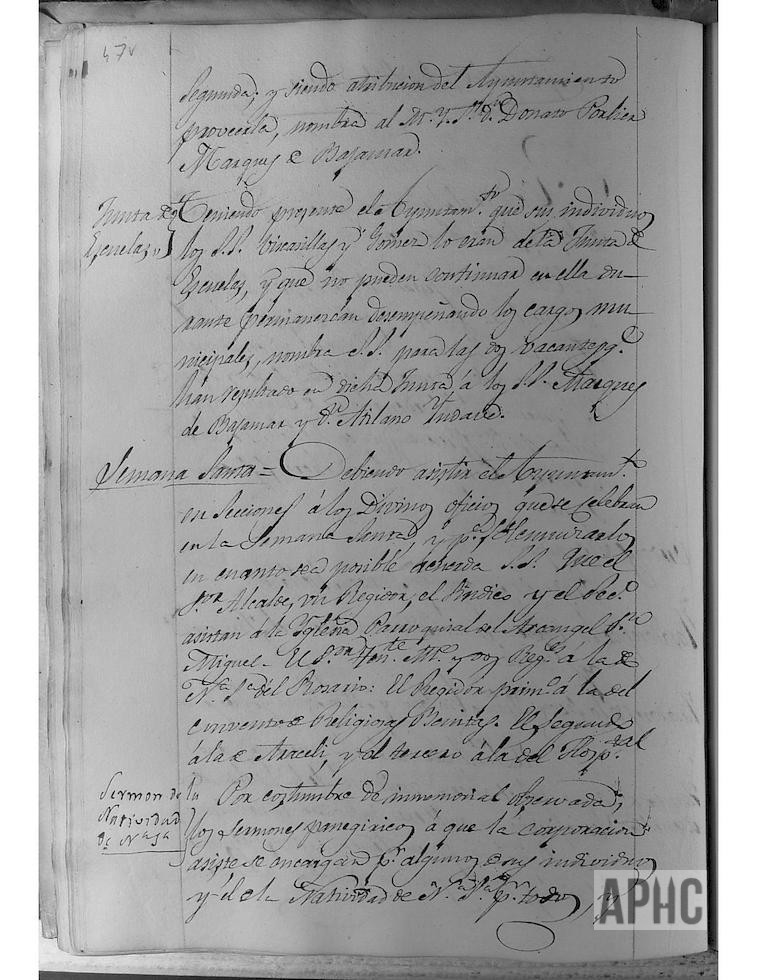 47v
Segunda; y siendo atribucion del Ayuntamiento
proveerla, nombra al M. Y. Sr. Dn. Donato Porlier
Marques de Bajamar.
Junta de
Escuelas
Teniendo presente el Ayuntamto. que sus individuos
los S.S. y Gomez lo eran de la Junta de
Escuelas, y que no pueden continuar en ella du-
rante permanezcan desempeñando los cargos mu-
nicipales, nombra S.S. para las dos vacantes q.e
han resultado en dicha Junta á los S.S. Marques
de Bajamar y Dn. Atilano
Semana Santa =
Debiendo asistir el Ayuntamto.
en Secciones á los Divinos oficios que se celebran
en la Semana Santa, y pa.
en cuanto sea posible acuerda S.S. Que el
Sor Alcalde, un Regidor, el Sindico y el Seco.
asistan á la Yglesia Parroquial del Arcangel Sn.
Miguel. El Sor. Tente. Me. y dos Regs. á la de
Na. Sa. del Rosario: El Regidor primo. á la del
convento de Religiosas Benitas. El Segundo
á la de Araceli, y el tercero á la del Hospital
Sermon de la
Natividad
de Na Sa
Por costumbre de inmemorial observada,
los Sermones panegiricos á que la corporacion
asiste se encargan pr. algunos de sus individuos
y el de la Natividad de Na. Sa. pr. todos, y
APHC